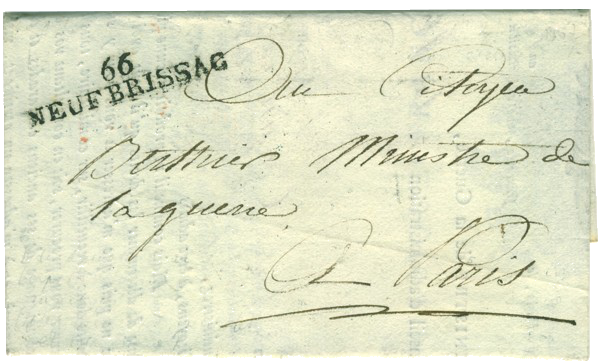 66
NEUFBRISSAC
Au Citoyen
Berthier Ministre de
la guerre
A Paris